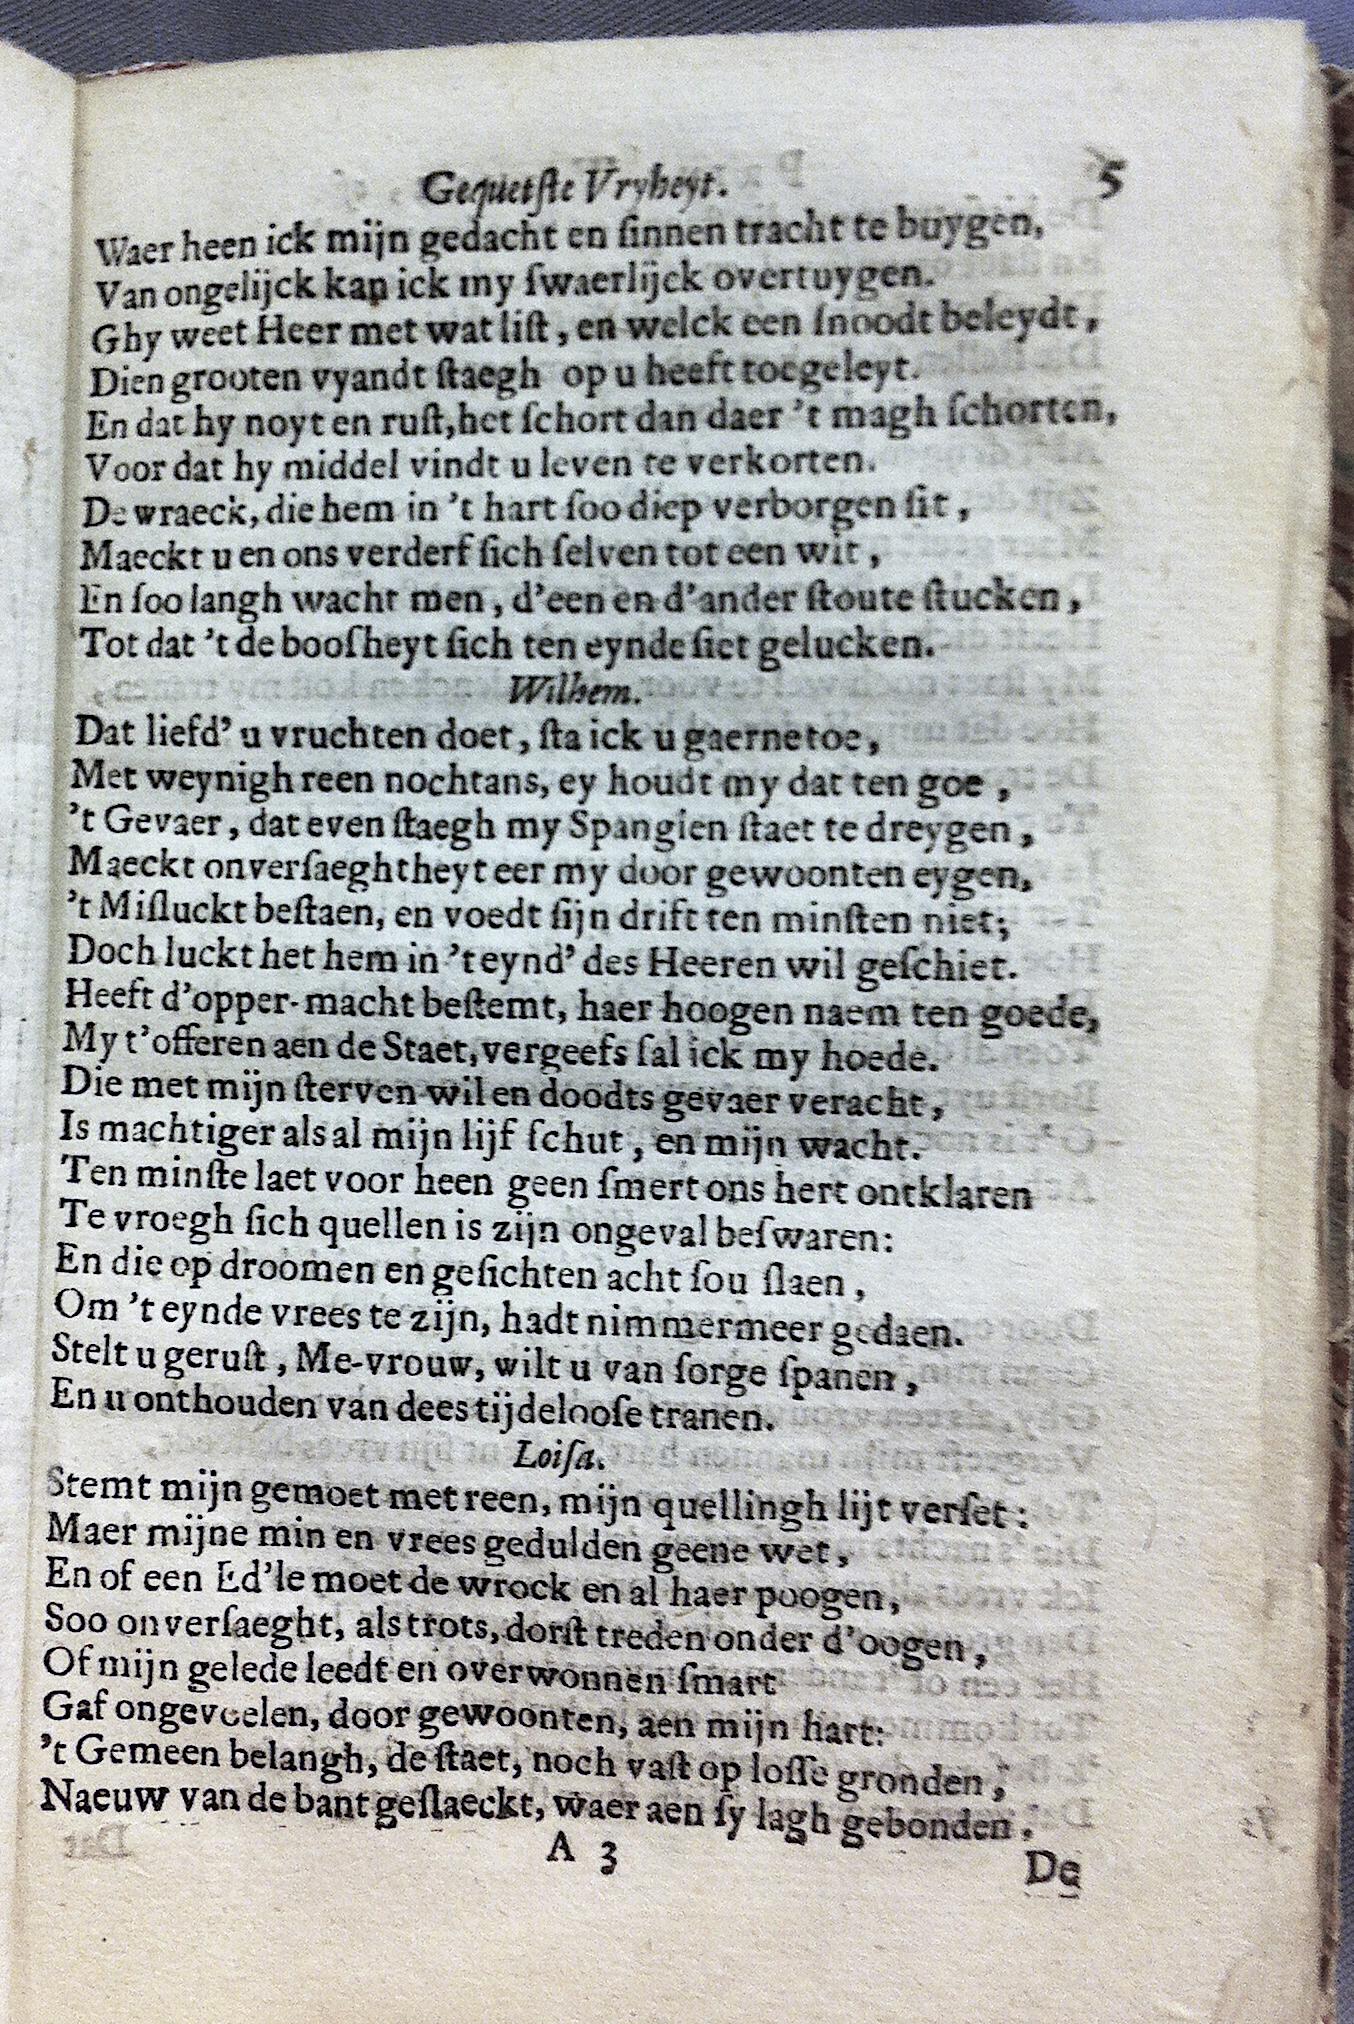 Gequetſte Vryheyt. 5
Waer heen ick mijn gedacht en ſinnen tracht te buygen,
Van ongelijck kan ick my ſwaerlijck overtuygen.
Ghy weet Heer met wat liſt, en welck een ſnoodt beleydt,
Dien grooten vyandt ſtaegh op u heeft toegeleyt.
En dat hy noyt en ruſt, het ſchort dan daer 't magh ſchorten,
Voor dat hy middel vindt u leven te verkorten.
De wraeck, die hem in 't hart ſoo diep verborgen ſit,
Maeckt u en ons verderf ſich ſelven tot een wit,
En ſoo langh wacht men, d'een en d'ander ſtoute ſtucken,
Tot dat 't de boosheyt ſich ten eynde ſiet gelucken.
Wilhem.
Dat liefd' u vruchten doet, ſta ick u gaerne toe,
Met weynigh reen nochtans, ey houdt my dat ten goe,
't Gevaer, dat even ſtaegh my Spangien ſtaet te dreygen,
Maeckt onverſaeghtheyt eer my door gewoonten eygen,
't Miſluckt beſtaen, en voedt ſijn drift ten minſten niet;
Doch luckt het hem in 't eynd' des Heeren wil geſchiet.
Heeft d'opper-macht beſtemt, haer hoogen naem ten goede,
My t'offeren aen de Staet, vergeefs ſal ick my hoede.
Die met mijn ſterven wil en doodts gevaer veracht,
Is machtiger als al mijn lijf ſchut, en mijn wacht.
Ten minſte laet voor heen geen ſmert ons hert ontklaren
Te vroegh ſich quellen is zijn ongeval beſwaren:
En die op droomen en geſichten acht ſou ſlaen,
Om 't eynde vrees te zijn, hadt nimmermeer gedaen.
Stelt u geruſt, Me-vrouw, wilt u van ſorge ſpanen,
En u onthouden van dees tijdelooſe tranen.
Loiſa.
Stemt mijn gemoet met reen, mijn quellingh lijt verſet:
Maer mijne min en vrees gedulden geene wet,
En of een Ed'le moet de wrock en al haer poogen,
Soo onverſaeght, als trots, dorſt treden onder d'oogen,
Of mijn gelede leedt en overwonnen ſmart
Gaf ongevoelen, door gewoonten, aen mijn hart:
't Gemeen belangh, de ſtaet, noch vaſt op loſſe gronden,
Naeuw van de bant geſlaeckt, waer aen ſy lagh gebonden.
A 3 De